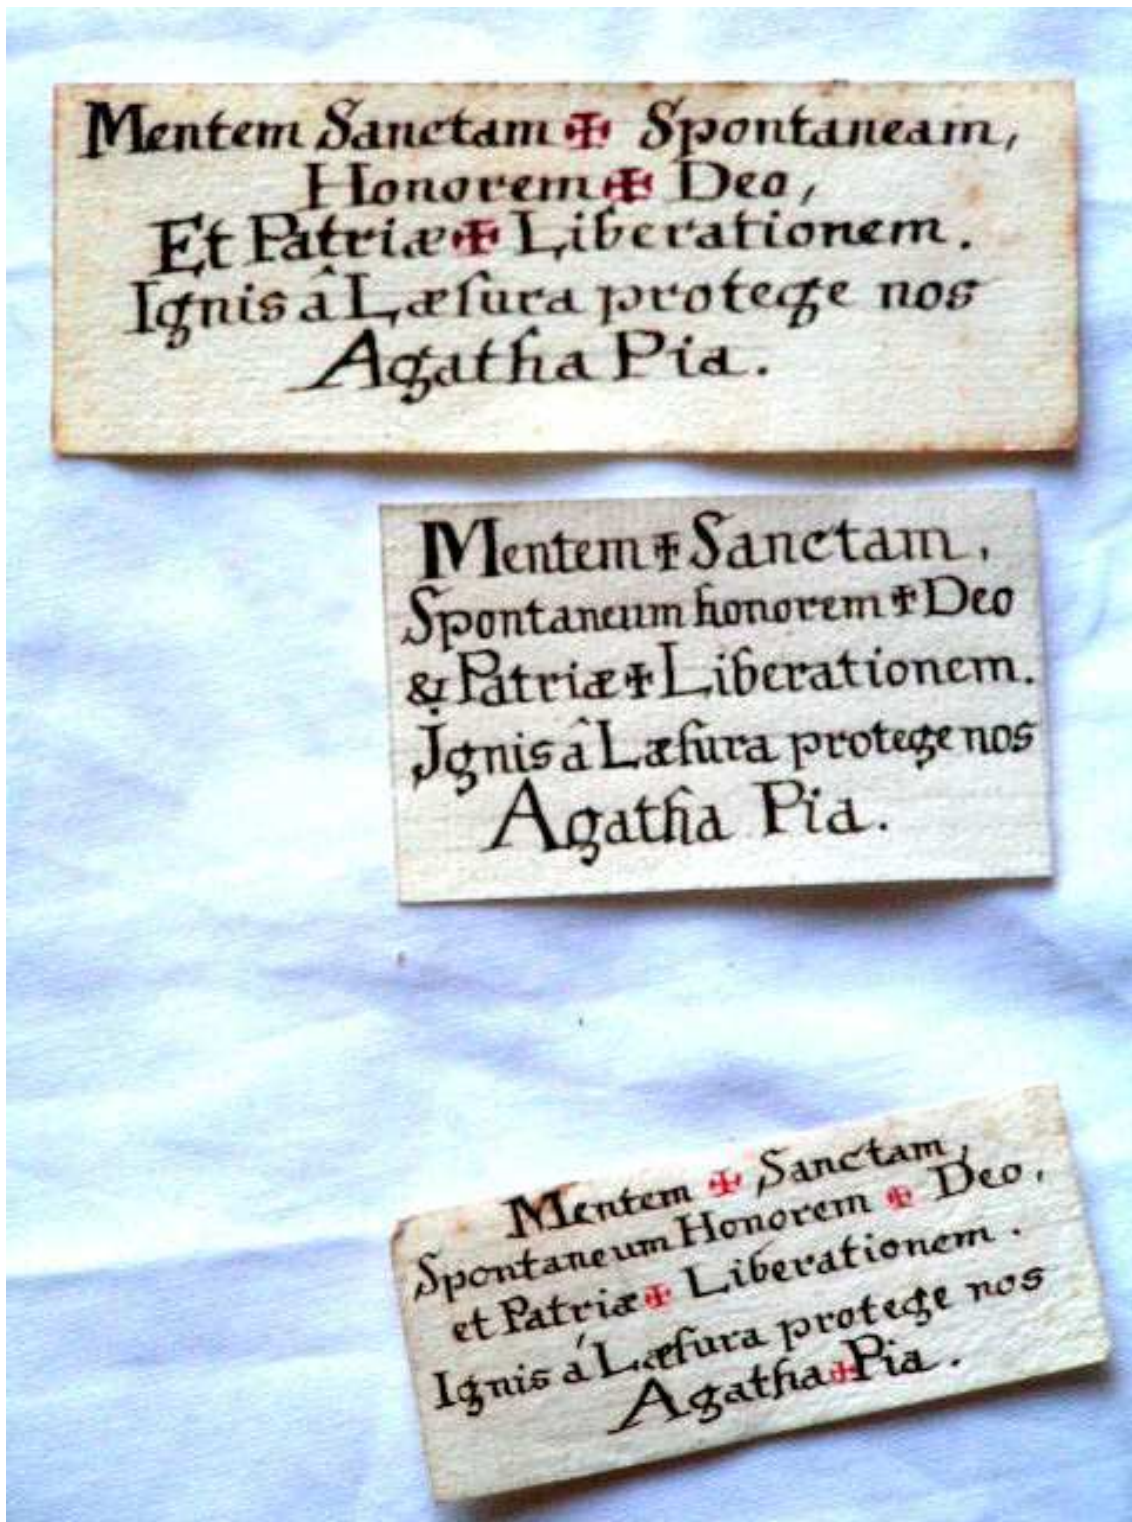 Mentem Sanctam ✠ Spontaneam,
Honorem ✠ Deo,
Et Patriæ ✠ Liberationem.
Ignis â Læſura protege nos
Agatha Pia.
Mentem ✠ Sanctam,
Spontaneum honorem ✠ Deo
& Patriæ ✠ Liberationem.
Jgnis â Læſura protege nos
Agatha Pia.
Mentem ✠ Sanctam,
Spontaneum Honorem ✠ Deo,
et Patriæ ✠ Liberationem.
Ignis á Læſura protege nos
Agatha ✠ Pia.